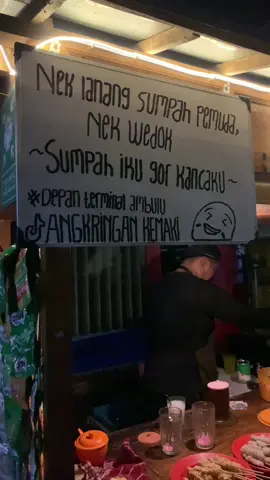 Nek lanang sumpah pemuda,
Nek wedok
~Sumpah iku gor kancaku~
*Depan terminal ambulu
ANGKRINGAN KEMAKI